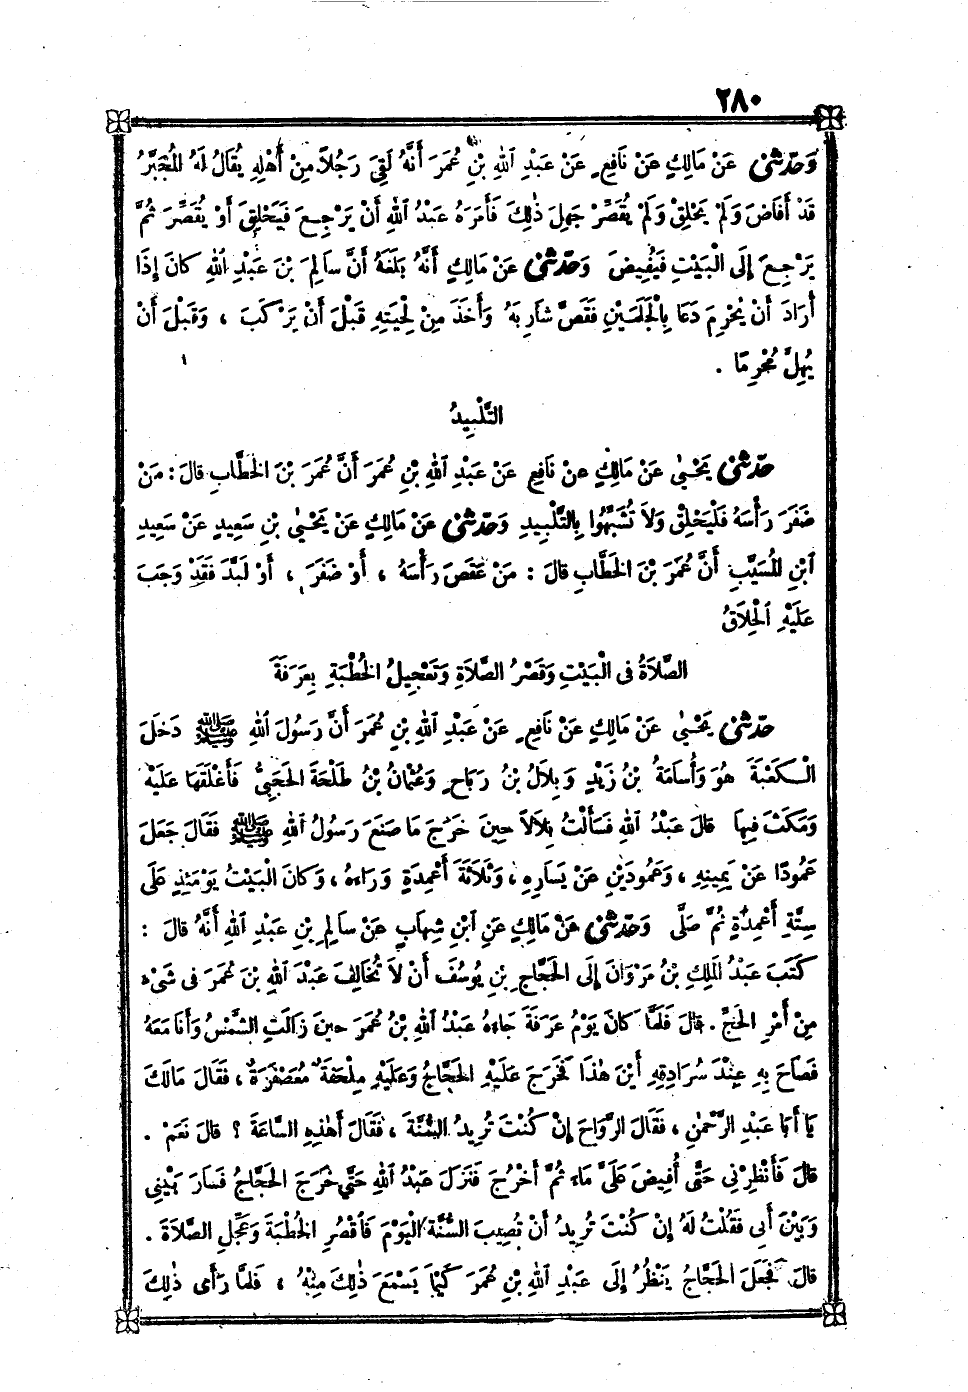 ٢٨٠
وَحَدَّثَنِي عَنْ مَالِكٍ عَنْ نَافِعٍ عَنْ عَبْدِ اللهِ بْنِ عُمَرَ أَنَّهُ لَقِيَ رَجُلاً مِنْ أَهْلِهِ يُقَالُ لَهُ الْمُجَبَّرُ
قَدْ أَفَاضَ وَلَمْ يَحْلِقْ وَلَمْ يُقَصِّرْ جَهِلَ ذٰلِكَ فَأَمَرَهُ عَبْدُ اللهِ أَنْ يَرْجِعَ فَيَحْلِقَ أَوْ يُقَصِّرَ ثُمَّ
يَرْجِعَ إِلَى الْبَيْتِ فَيُفِيضَ وَحَدَّثَنِي عَنْ مَالِكٍ أَنَّهُ بَلَغَهُ أَنَّ سَالِمَ بْنَ عَبْدِ اللهِ كَانَ إِذَا
أَرَادَ أَنْ يُحْرِمَ دَعَا بِالْجَلَمَيْنِ فَقَصَّ شَارِبَهُ وَأَخَذَ مِنْ لِحْيَتِهِ قَبْلَ أَنْ يَرْكَبَ ، وَقَبْلَ أَنْ
يُهِلَّ مُحْرِمًا .
التَّلْبِيدُ
حَدَّثَنِي يَحْيٰى عَنْ مَالِكٍ عَنْ نَافِعٍ عَنْ عَبْدِ اللهِ بْنِ عُمَرَ أَنَّ عُمَرَ بْنَ الْخَطَّابِ قَالَ : مَنْ
ضَفَرَ رَأْسَهُ فَلْيَحْلِقْ وَلاَ تُشَبِّهُوا بِالتَّلْبِيدِ وَحَدَّثَنِي عَنْ مَالِكٍ عَنْ يَحْيٰى بْنِ سَعِيدٍ عَنْ سَعِيدِ
ابْنِ الْمُسَيَّبِ أَنَّ عُمَرَ بْنَ الْخَطَّابِ قَالَ : مَنْ عَقَصَ رَأْسَهُ ، أَوْ ضَفَرَ ، أَوْ لَبَّدَ فَقَدْ وَجَبَ
عَلَيْهِ الْحِلاَقُ
الصَّلاَةُ فِي الْبَيْتِ وَقَصْرُ الصَّلاَةِ وَتَعْجِيلُ الْخُطْبَةِ بِعَرَفَةَ
حَدَّثَنِي يَحْيٰى عَنْ مَالِكٍ عَنْ نَافِعٍ عَنْ عَبْدِ اللهِ بْنِ عُمَرَ أَنَّ رَسُولَ اللهِ ﷺ دَخَلَ
الْكَعْبَةَ هُوَ وَأُسَامَةُ بْنُ زَيْدٍ وَبِلاَلُ بْنُ رَبَاحٍ وَعُثْمَانُ بْنُ طَلْحَةَ الْحَجَبِيُّ فَأَغْلَقَهَا عَلَيْهِ
وَمَكَثَ فِيهَا قَالَ عَبْدُ اللهِ فَسَأَلْتُ بِلاَلاً حِينَ خَرَجَ مَا صَنَعَ رَسُولُ اللهِ ﷺ فَقَالَ جَعَلَ
عَمُودًا عَنْ يَمِينِهِ ، وَعَمُودَيْنِ عَنْ يَسَارِهِ ، وَثَلاَثَةَ أَعْمِدَةٍ وَرَاءَهُ ، وَكَانَ الْبَيْتُ يَوْمَئِذٍ عَلَى
سِتَّةِ أَعْمِدَةٍ ثُمَّ صَلَّى وَحَدَّثَنِي عَنْ مَالِكٍ عَنِ ابْنِ شِهَابٍ عَنْ سَالِمِ بْنِ عَبْدِ اللهِ أَنَّهُ قَالَ :
كَتَبَ عَبْدُ الْمَلِكِ بْنُ مَرْوَانَ إِلَى الْحَجَّاجِ بْنِ يُوسُفَ أَنْ لاَ تُخَالِفَ عَبْدَ اللهِ بْنَ عُمَرَ فِي شَيْءٍ
مِنْ أَمْرِ الْحَجِّ . قَالَ فَلَمَّا كَانَ يَوْمُ عَرَفَةَ جَاءَهُ عَبْدُ اللهِ بْنُ عُمَرَ حِينَ زَالَتِ الشَّمْسُ وَأَنَا مَعَهُ
فَصَاحَ بِهِ عِنْدَ سُرَادِقِهِ أَيْنَ هٰذَا فَخَرَجَ عَلَيْهِ الْحَجَّاجُ وَعَلَيْهِ مِلْحَفَةٌ مُعَصْفَرَةٌ ، فَقَالَ مَالَكَ
يَا أَبَا عَبْدِ الرَّحْمٰنِ ، فَقَالَ الرَّوَاحَ إِنْ كُنْتَ تُرِيدُ السُّنَّةَ ، فَقَالَ أَهٰذِهِ السَّاعَةَ ؟ قَالَ نَعَمْ .
قَالَ فَأَنْظِرْنِي حَتَّى أُفِيضَ عَلَيَّ مَاءً ثُمَّ أَخْرُجَ فَنَزَلَ عَبْدُ اللهِ حَتَّى خَرَجَ الْحَجَّاجُ فَسَارَ بَيْنِي
وَبَيْنَ أَبِي فَقُلْتُ لَهُ إِنْ كُنْتَ تُرِيدُ أَنْ تُصِيبَ السُّنَّةَ الْيَوْمَ فَاقْصُرِ الْخُطْبَةَ وَعَجِّلِ الصَّلاَةَ .
قَالَ فَجَعَلَ الْحَجَّاجُ يَنْظُرُ إِلَى عَبْدِ اللهِ بْنِ عُمَرَ كَيْمَا يَسْمَعَ ذٰلِكَ مِنْهُ ، فَلَمَّا رَأَى ذٰلِكَ